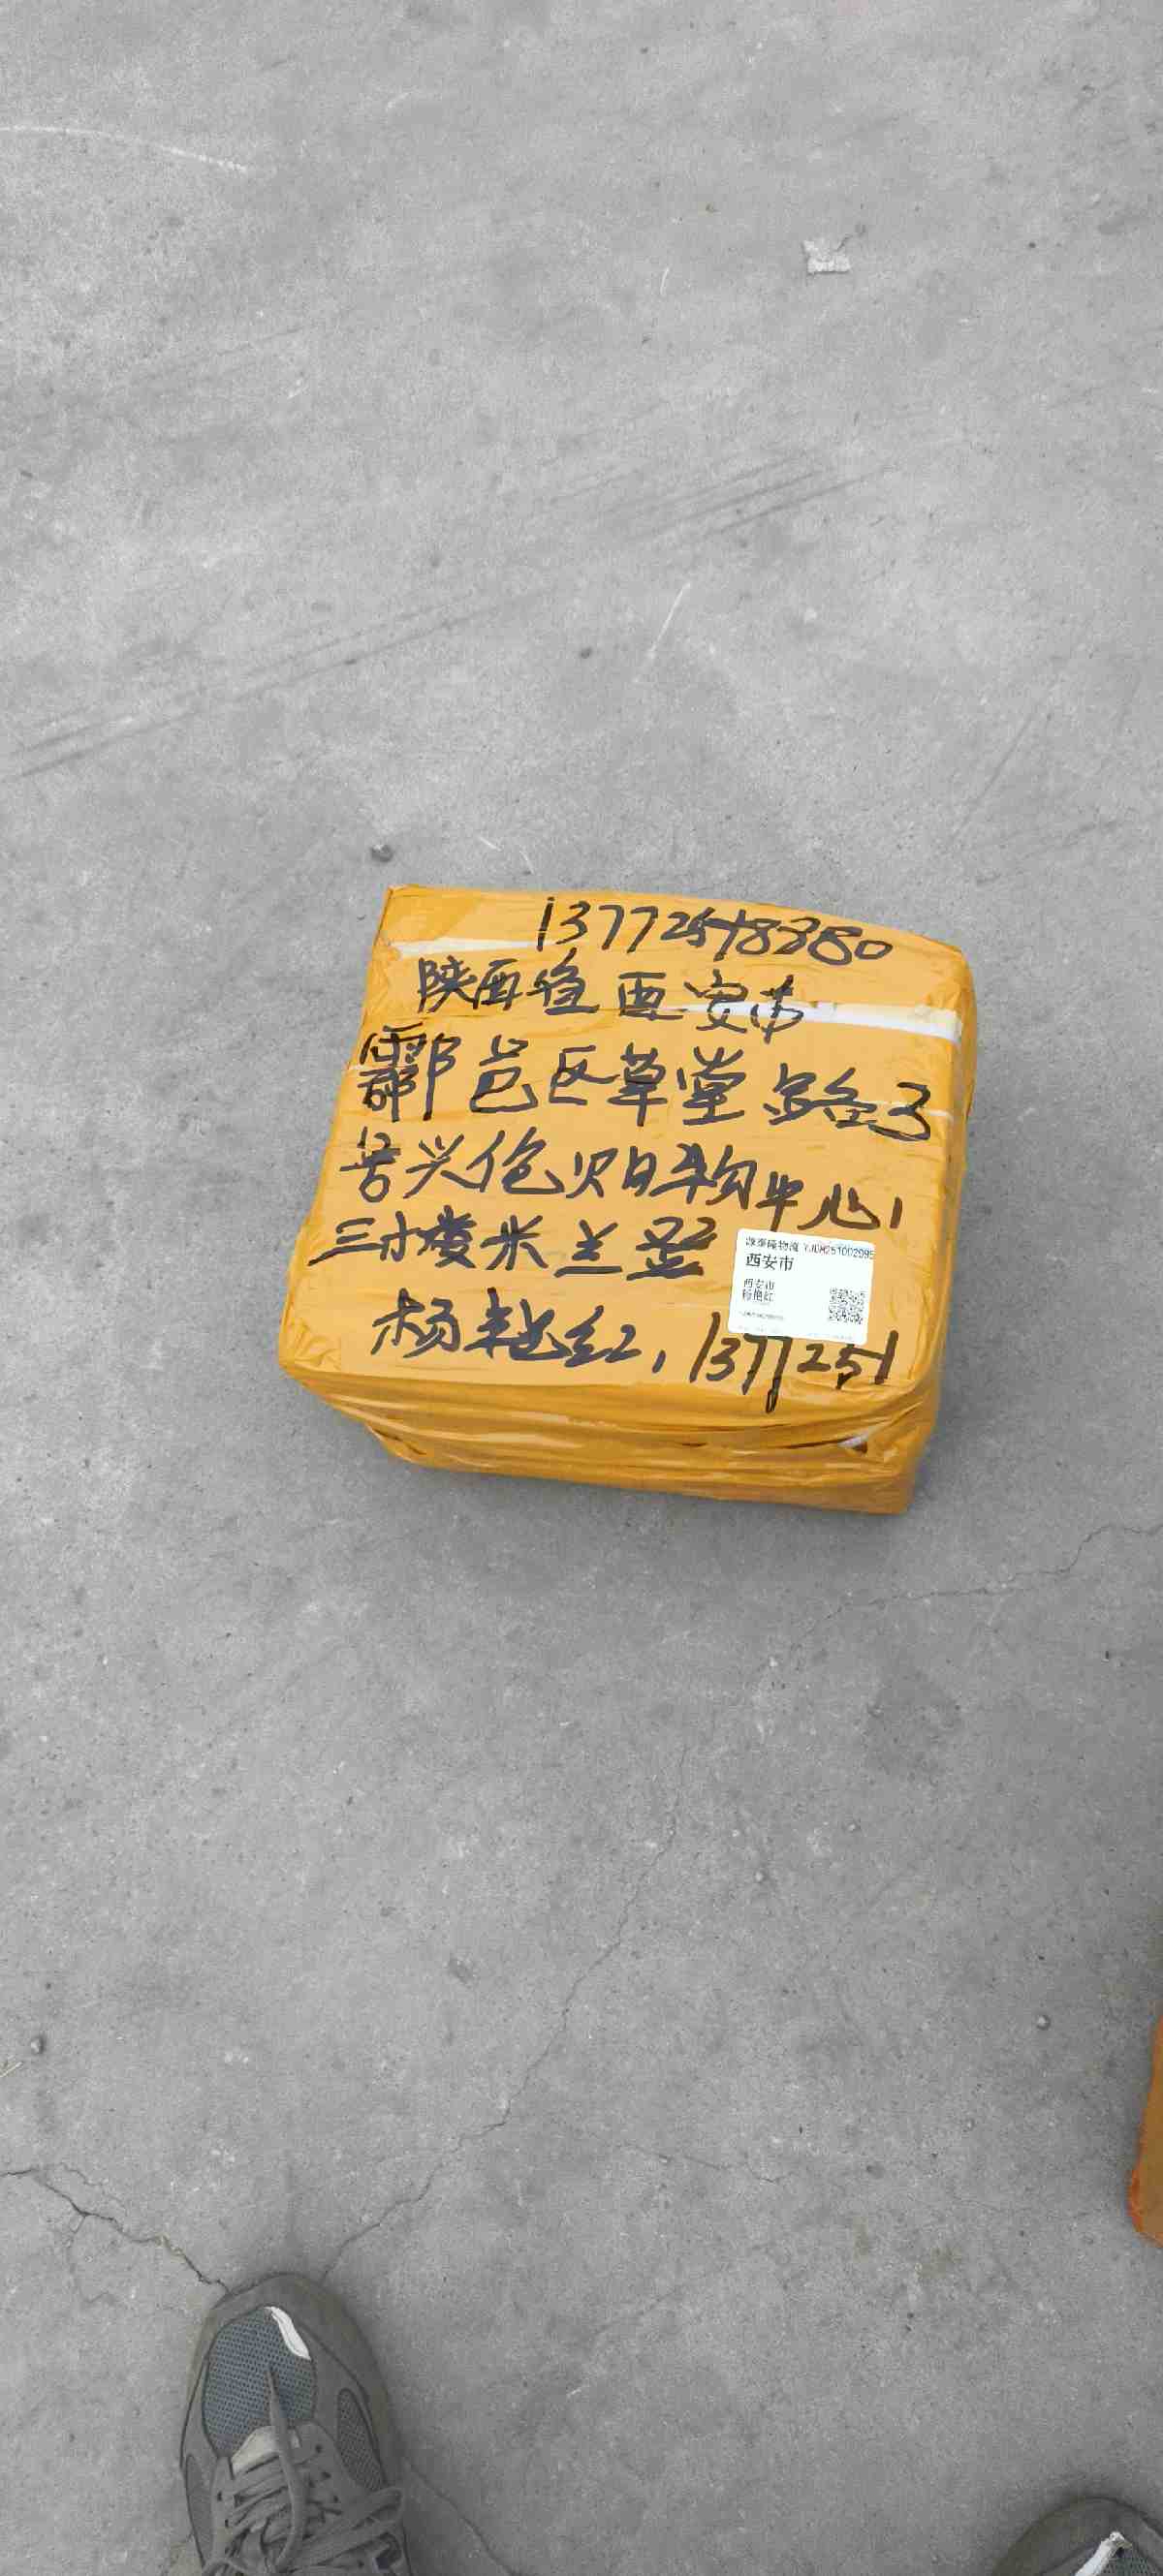 13772518380
陕西省西安市
鄠邑区草堂路3
号兴伦购物中心1
三小楼米兰登
杨艳红,1377251
西安市
西安市
杨艳红